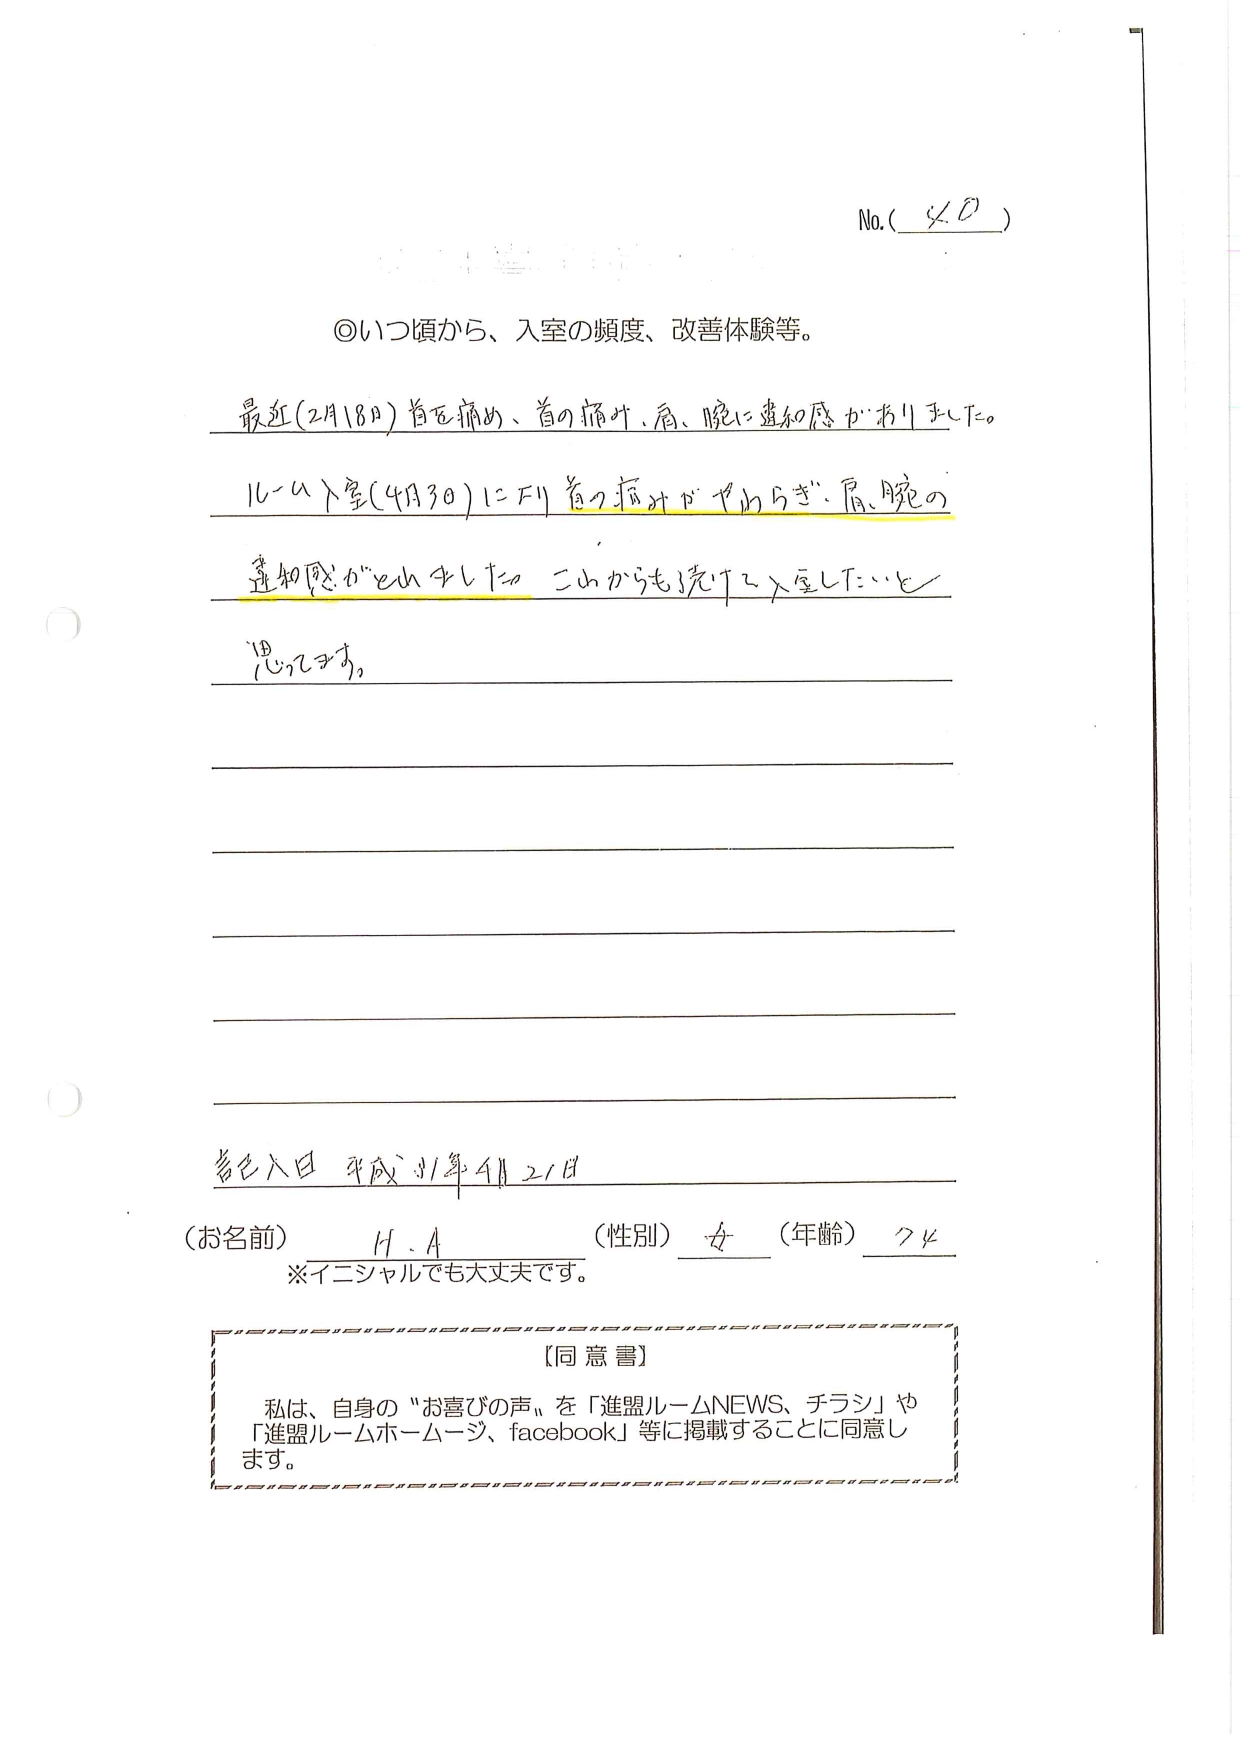 No.( 40 )
◎いつ頃から、入室の頻度、改善体験等。
最近(2月18日)首を痛め、首の痛み、肩、腕に違和感がありました。
ルーム入室(4月30)により首の痛みがやわらぎ、肩、腕の
違和感がとれました。これからも続けて入室したいと
思ってます。
記入日 平成31年4月21日
（お名前） H.A （性別） 女 （年齢） 74
※イニシャルでも大丈夫です。
【同 意 書】
私は、自身の〝お喜びの声〟を「進盟ルームNEWS、チラシ」や
「進盟ルームホームージ、facebook」等に掲載することに同意し
ます。